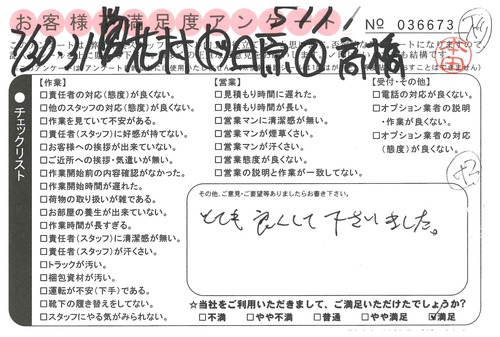 お客様満足度アンケート
No 036673
【作業】
□責任者の対応(態度)が良くない。
□他のスタッフの対応(態度)が良くない。
□作業を見ていて不安がある。
□責任者(スタッフ)に好感が持てない。
□お客様への挨拶が出来ていない。
□ご近所への挨拶・気遣いが無い。
□作業開始前の内容確認がなかった。
□作業開始時間が遅れた。
□荷物の取り扱いが雑である。
□お部屋の養生が出来ていない。
□作業時間が長すぎる。
□責任者(スタッフ)に清潔感が無い。
□責任者(スタッフ)が汗くさい。
□トラックが汚い。
□梱包資材が汚い。
□運転が不安(下手)である。
□靴下の履き替えをしてない。
□スタッフにやる気がみられない。
【営業】
□見積もり時間に遅れた。
□見積もり時間が長い。
□営業マンに清潔感が無い。
□営業マンが煙草くさい。
□営業マンが汗くさい。
□営業態度が良くない。
□営業の説明と作業が一致してない。
【受付・その他】
□電話の対応が良くない。
□オプション業者の説明
・作業が良くない。
□オプション業者の対応
(態度)が良くない。
チェックリスト
その他、ご意見・ご要望等ありましたらお書き下さい。
とても良くして下さいました。
☆当社をご利用いただきまして、ご満足いただけたでしょうか?
□不満 □やや不満 □普通 □やや満足 ☑満足